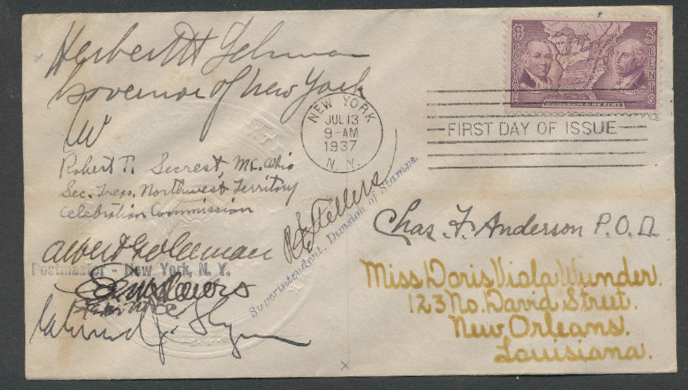 Herbert H Lehman
Governor of New York
NEW YORK
JUL 13
9-AM
1937
N. Y.
FIRST DAY OF ISSUE
3 3
CENTS
Robert T. Secrest, M.C. Ohio
Sec. Treas. Northwest Territory
Celebration Commission
Albert Goldman
Postmaster - New York, N. Y.
R E Fellers
Superintendent, Division of Stamps.
Chas F. Anderson P.O.D.
Miss Doris Viola Wunder.
123 No. David Street.
New Orleans.
Louisiana.